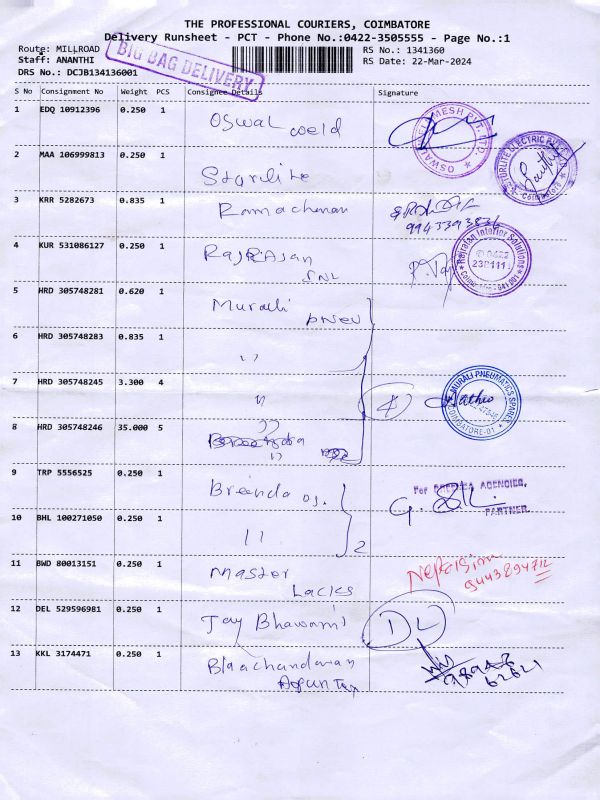 THE PROFESSIONAL COURIERS, COIMBATORE
Delivery Runsheet - PCT - Phone No.:0422-3505555 - Page No.:1
Route: MILLROAD
RS No.: 1341360
Staff: ANANTHI
RS Date: 22-Mar-2024
DRS No.: DCJB134136001
BIG BAG DELIVERY
S No Consignment No Weight PCS Consignee Details Signature
1 EDQ 10912396 0.250 1 Oswal weld
2 MAA 106999813 0.250 1 Starlite
3 KRR 5282673 0.835 1 Ramachanan
4 KUR 531086127 0.250 1 RajRajan
0422
5 HRD 305748281 0.620 1 Murali pneu
6 HRD 305748283 0.835 1 ''
7 HRD 305748245 3.300 4 '' 4
MURALI PNEUMATICS SPARES
COIMBATORE-01
8 HRD 305748246 35.000 5 ''
9 TRP 5556525 0.250 1 Breenda
For BREEZA AGENCIES,
PARTNER
10 BHL 100271050 0.250 1 '' 2
11 BWD 80013151 0.250 1 Master Lacks
9443894712
12 DEL 529596981 0.250 1 Jay Bhawani's DL
13 KKL 3174471 0.250 1